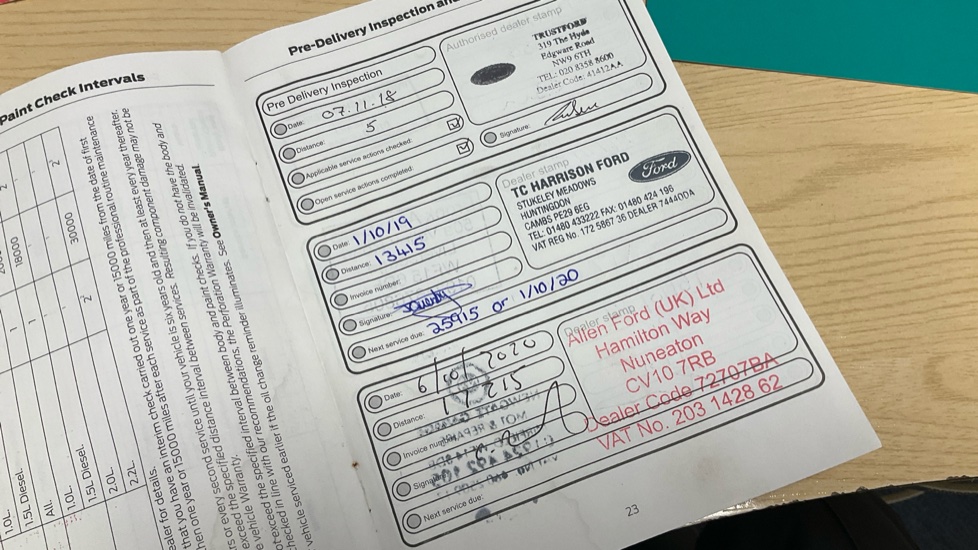 Paint Check Intervals
2
18000
1
2
30000
2
1.0L.
1.5L Diesel
All.
1.0L.
1.5L Diesel.
2.0L.
2.2L.
ealer for details.
that you have an interim check carried out one year or 15000 miles from the date of first
hen one year or 15000 miles after each service as part of the professional routine maintenance
until your vehicle is six years old and then at least every year thereafter.
rs or every second service
distance interval between services. Resulting component damage may not be
exceed the specified interval between body and paint checks. If you do not have the body and
e vehicle serviced in line with our recommendations, the Perforation Warranty will be invalidated.
vehicle serviced earlier if the oil change reminder illuminates. See Owner's Manual.
Pre-Delivery Inspection an
Pre Delivery Inspection
Date: 07.11.18
Distance: 5
Applicable service actions checked:
Open service actions completed:
Authorised dealer stamp
TRUSTFORD
319 The Hyde
Edgware Road
NW9 6TH
TEL: 020 8358 8600
Dealer Code: 41412AA
Signature:
Date: 1/10/19
Distance: 13415
Invoice number:
Signature:
Next service due: 25915 or 1/10/20
Dealer stamp
TC HARRISON FORD
Ford
STUKELEY MEADOWS
HUNTINGDON
CAMBS PE29 6EG
TEL: 01480 433222 FAX: 01480 424 196
VAT REG No. 172 5867 36 DEALER 74440DA
Date: 6/10/2020
Distance:
Invoice number:
Signature:
Next service due:
Dealer stamp
Allen Ford (UK) Ltd
Hamilton Way
Nuneaton
CV10 7RB
Dealer Code 72707BA
VAT No. 203 1428 62
23